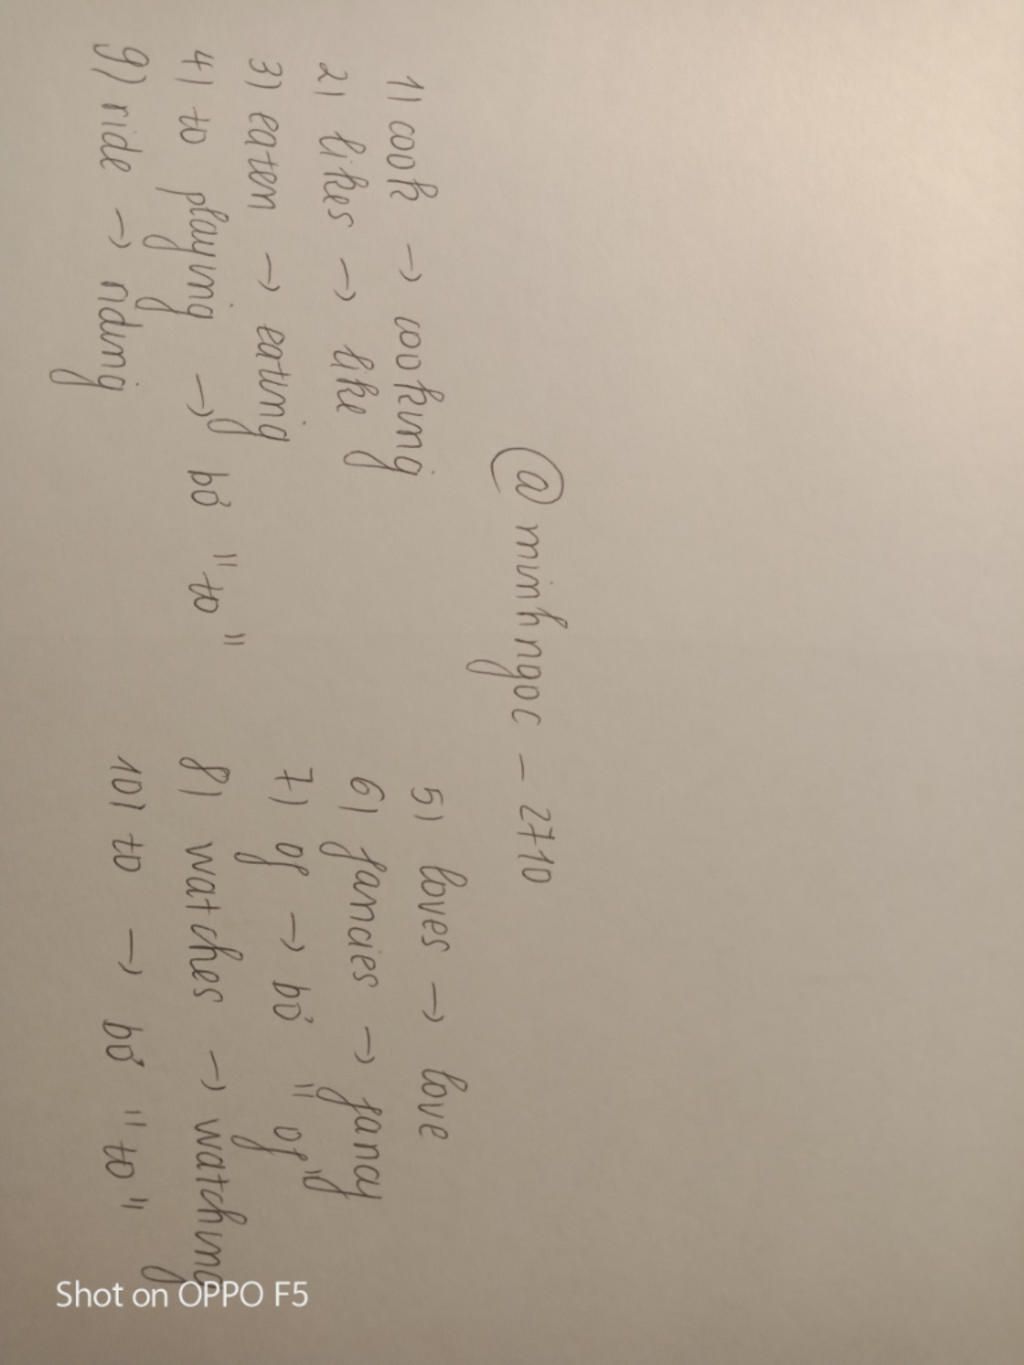 @minhngoc - 2710
1) cook → cooking
2) likes → like
3) eaten → eating
4) to playing → bỏ "to"
9) ride → riding
5) loves → love
6) fancies → fancy
7) of → bỏ "of"
8) watches → watching
10) to → bỏ "to"
Shot on OPPO F5